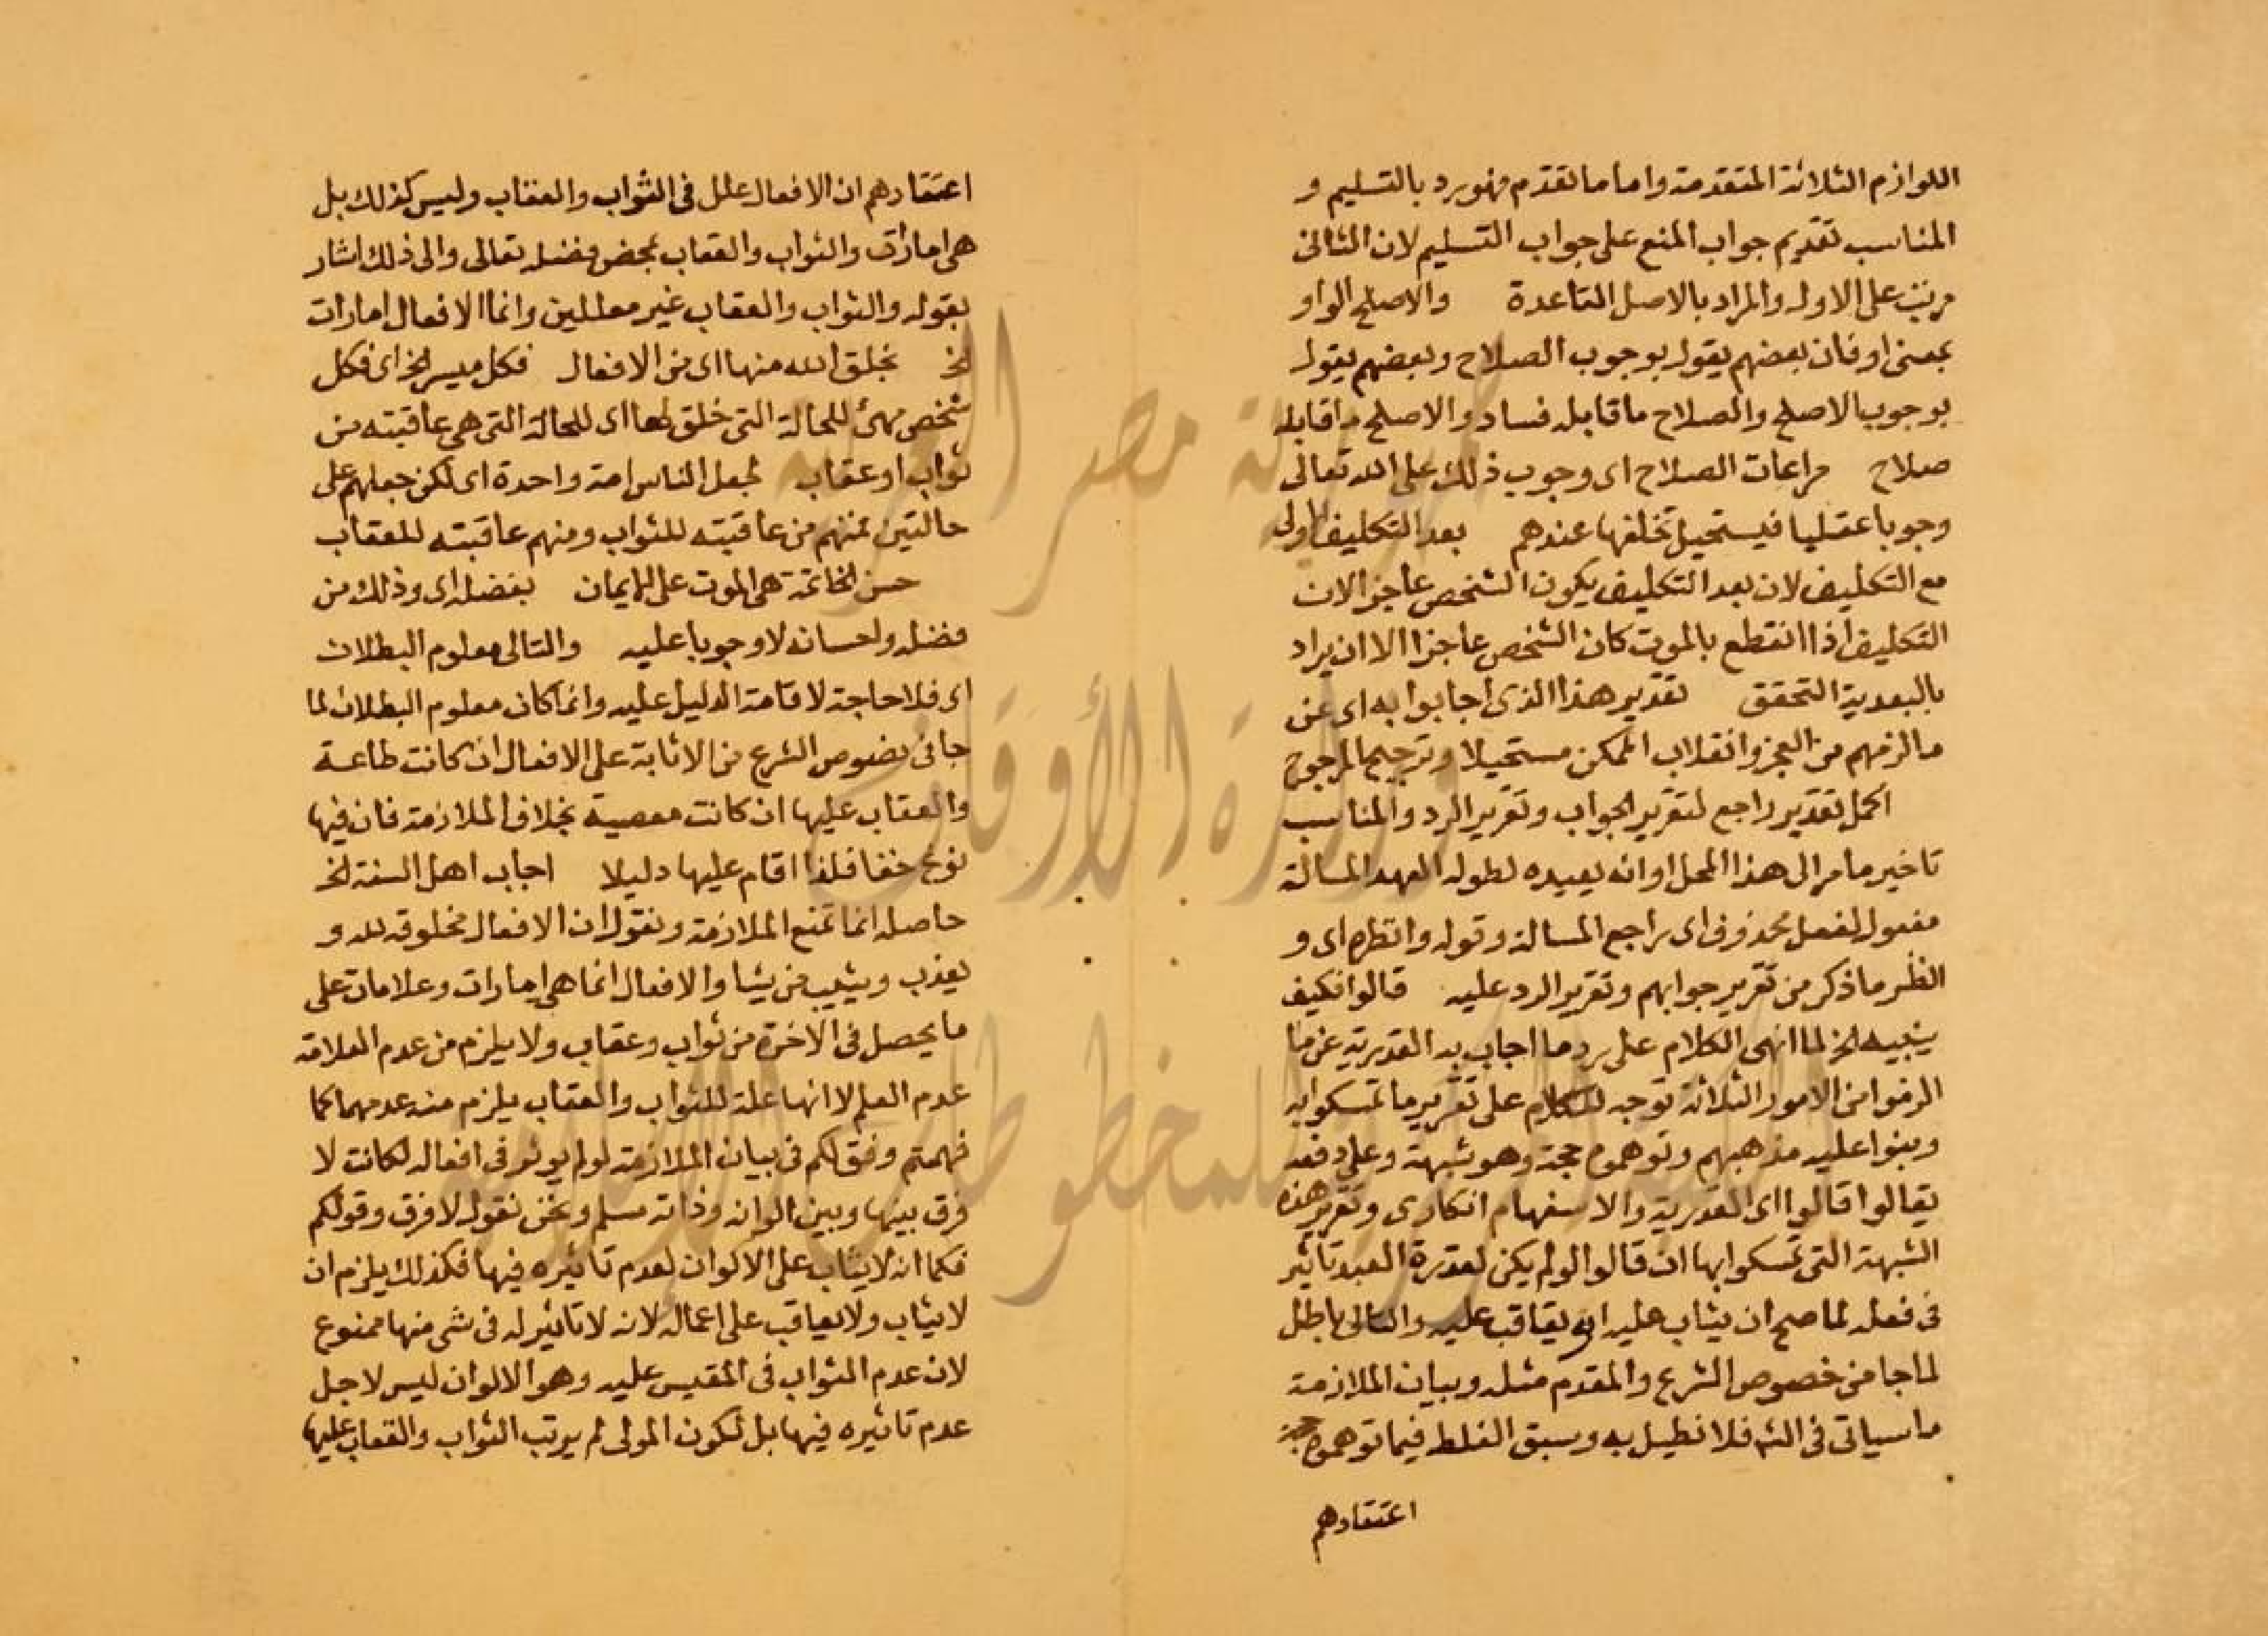 اللوازم الثلاثة المتقدمة واما ما تقدم فهو رد بالتسليم و
المناسب تقديم جواب المنع على جواب التسليم لان الثانى
مرتب على الاول والمراد بالاصل القاعدة والاصلح الواو
بمعنى او فان بعضهم يقول بوجوب الصلاح وبعضهم يقول
بوجوب الاصلح والصلاح ما قابله فساد والاصلح ما قابله
صلاح مراعات الصلاح اى وجوب ذلك على الله تعالى
وجوبا عقليا فيستحيل تخلفها عندهم بعد التكليف الاولى
مع التكليف لان بعد التكليف يكون الشخص عاجزا لان
التكليف اذا انقطع بالموت كان الشخص عاجزا الا ان يراد
بالبعدية التحقق تقدير هذا الذى اجابوا به اى عن
ما الزمهم من العجز وانقلاب الممكن مستحيلا وترجيح المرجوح
اكمل تقدير راجع لتقرير الجواب وتقرير الرد والمناسب
تاخير ما مر الى هذا المحل او انه يعيده لطول العهد المسالة
مفعول لفعل محذوف اى راجع المسالة وقوله وانظره اى و
انظر ما ذكر من تقرير جوابهم وتقرير الرد عليه قالوا فكيف
يثيبه الخ لما انهى الكلام على رد ما اجاب به القدرية عن ما
الزموا من الامور الثلاثة توجه للكلام على تقرير ما تمسكوا به
وبنوا عليه مذهبهم وتوهموه حجة وهو شبهة وعلى دفعه
يقالوا قالوا اى القدرية والاستفهام انكارى وتقرير هذه
الشبهة التى تمسكوا بها ان قالوا لو لم يكن لقدرة العبد تاثير
فى فعله لما صح ان يثاب عليه او يعاقب عليه والتالى باطل
لما جا من خصوص الشرع والمقدم مثله وبيان الملازمة
ما سياتى فى الشـ فلا نطيل به وسبق الغلط فيما توهموه حجة
اعتقادهم
اعتقادهم ان الافعال علل فى الثواب والعقاب وليس كذلك بل
هى امارات والثواب والعقاب بمحض فضله تعالى والى ذلك اشار
بقوله والثواب والعقاب غير معللين وانما الافعال امارات
الخ بخلق الله منها اى من الافعال فكل ميسر الخ اى فكل
شخص مهئ للحالة التى خلق لها اى للحالة التى هى عاقبته من
ثواب او عقاب لجعل الناس امة واحدة اى لكن جعلهم على
حالتين فمنهم من عاقبته للثواب ومنهم عاقبته للعقاب
حسن الخاتمة هى الموت على الايمان بفضله اى وذلك من
فضله واحسانه لا وجوبا عليه والتالى معلوم البطلان
اى فلا حاجة لاقامة الدليل عليه وانما كان معلوم البطلان لما
جا فى نصوص الشرع من الاثابة على الافعال ان كانت طاعة
والعقاب عليها ان كانت معصية بخلاف الملازمة فان فيها
نوع خفا فلذا اقام عليها دليلا اجاب اهل السنة الخ
حاصله انما تمنع الملازمة ونقول ان الافعال مخلوقة لله و
يعذب ويثيب من يشا والافعال انما هى امارات وعلامات على
ما يحصل فى الاخرة من ثواب وعقاب ولا يلزم من عدم العلاقه
عدم العلم لا انها علة للثواب والعقاب يلزم منه عدمهما كما
فهمتم وفق لكم فى بيان الملازمة لو لم يوثر فى افعاله لكانت لا
فرق بينها وبين الوانه وذاته مسلم ونحن نقول لا فرق وقولكم
فكما انه لا يثاب على الالوان لعدم تاثيره فيها فكذلك يلزم ان
لا يثاب ولا يعاقب على اعماله لانه لا تاثير له فى شى منها ممنوع
لان عدم الثواب فى المقيس عليه وهو الالوان ليس لاجل
عدم تاثيره فيها بل لكون المولى لم يرتب الثواب والعقاب عليها